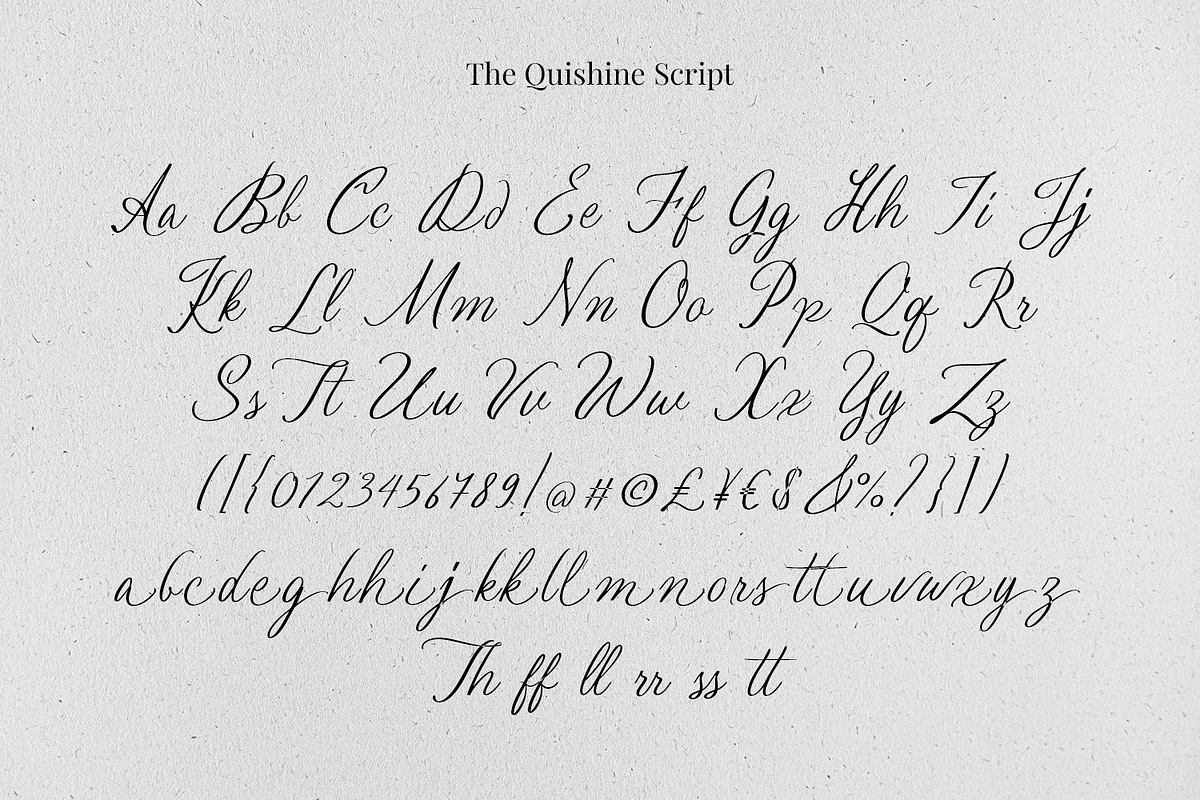 The Quishine Script
Aa Bb Cc Dd Ee Ff Gg Hh Ii Jj
Kk Ll Mm Nn Oo Pp Qq Rr
Ss Tt Uu Vv Ww Xx Yy Zz
([{0123456789!@#©£¥€$&%?}])
abcdeghhijkkllmnorsttuvwxyz
Th ff ll rr ss tt